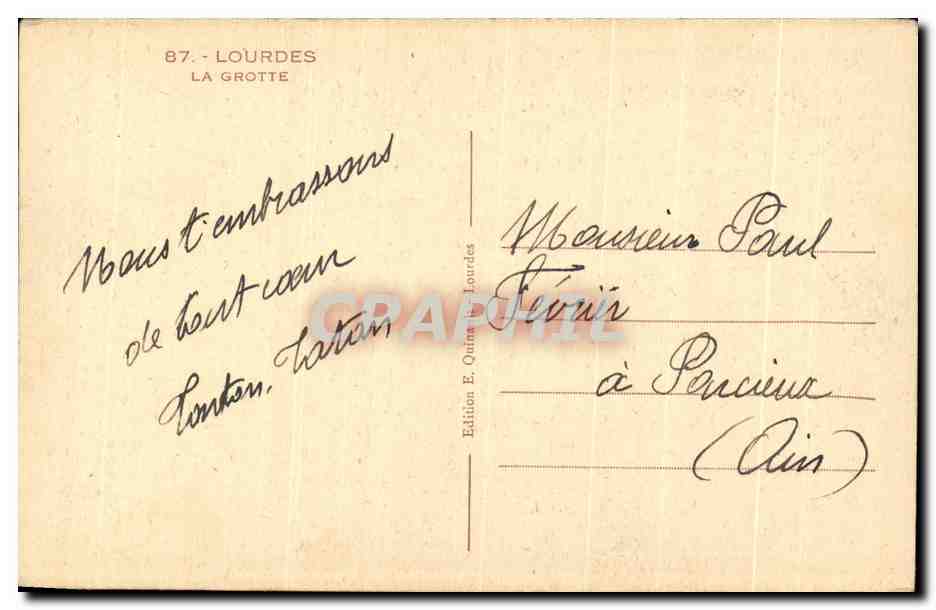 87. - LOURDES
LA GROTTE
Nous t'embrassons
de tout cœur
Tonton, Tatan
Edition E. Quina Lourdes
Monsieur Paul
Février
à Parcieux
(Ain)
CRAPHIL